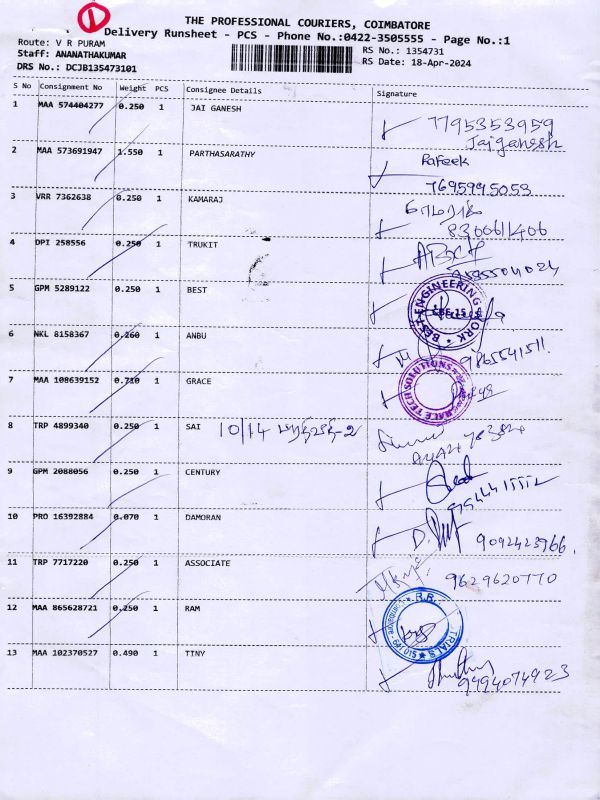 1
THE PROFESSIONAL COURIERS, COIMBATORE
Delivery Runsheet - PCS - Phone No.:0422-3505555 - Page No.:1
Route: V R PURAM
RS No.: 1354731
Staff: ANANATHAKUMAR
RS Date: 18-Apr-2024
DRS No.: DCJB135473101
S No Consignment No Weight PCS Consignee Details Signature
1 MAA 574404277 0.250 1 JAI GANESH
7795353959
Jaiganesh
2 MAA 573691947 1.550 1 PARTHASARATHY
Rafeek
7695995053
3 VRR 7362638 0.250 1 KAMARAJ
காமராஜ்
8300611406
4 DPI 258556 0.250 1 TRUKIT
5 GPM 5289122 0.250 1 BEST
BEST ENGINEERING WORK
CBE-15
6 NKL 8158367 0.260 1 ANBU
7 MAA 108639152 0.710 1 GRACE
GRACE TECH SOLUTIONS
8 TRP 4899340 0.250 1 SAI 10/14
9 GPM 2088056 0.250 1 CENTURY
10 PRO 16392884 0.070 1 DAMORAN
9092423966.
11 TRP 7717220 0.250 1 ASSOCIATE
9629620770
12 MAA 865628721 0.250 1 RAM
13 MAA 102370527 0.490 1 TINY
9494074923